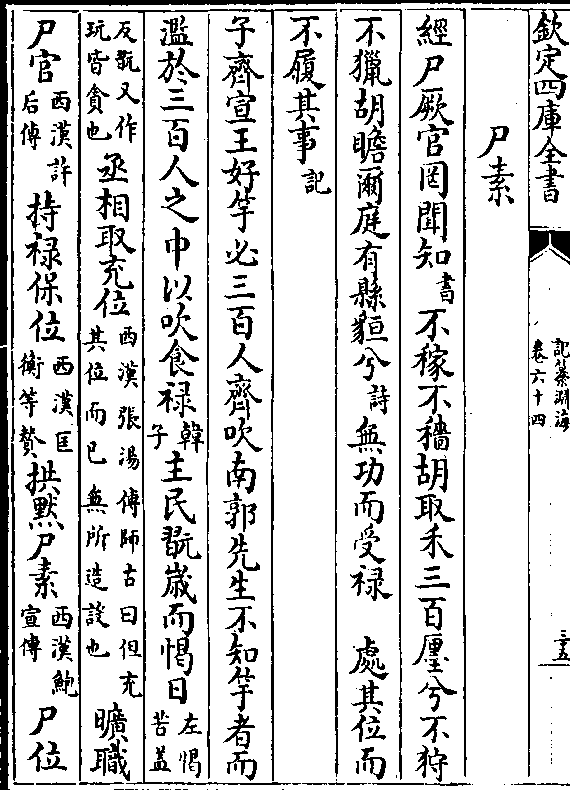 欽定四庫全書
記纂淵海
卷六十四
三五
尸素
經尸厥官罔聞知書不稼不穡胡取禾三百廛兮不狩
不獵胡瞻爾庭有縣貆兮詩無功而受祿 處其位而
不履其事記
子齊宣王好竽必三百人齊吹南郭先生不知竽者而
濫於三百人之中以吹食祿韓子主民翫嵗而愒日左愒苦葢
反翫又作玩皆貪也丞相取充位西漢張湯傳師古曰但充其位而已無所造設也曠職
尸官西漢許后傳持祿保位西漢匡衡等贊拱默尸素西漢鮑宣傳尸位